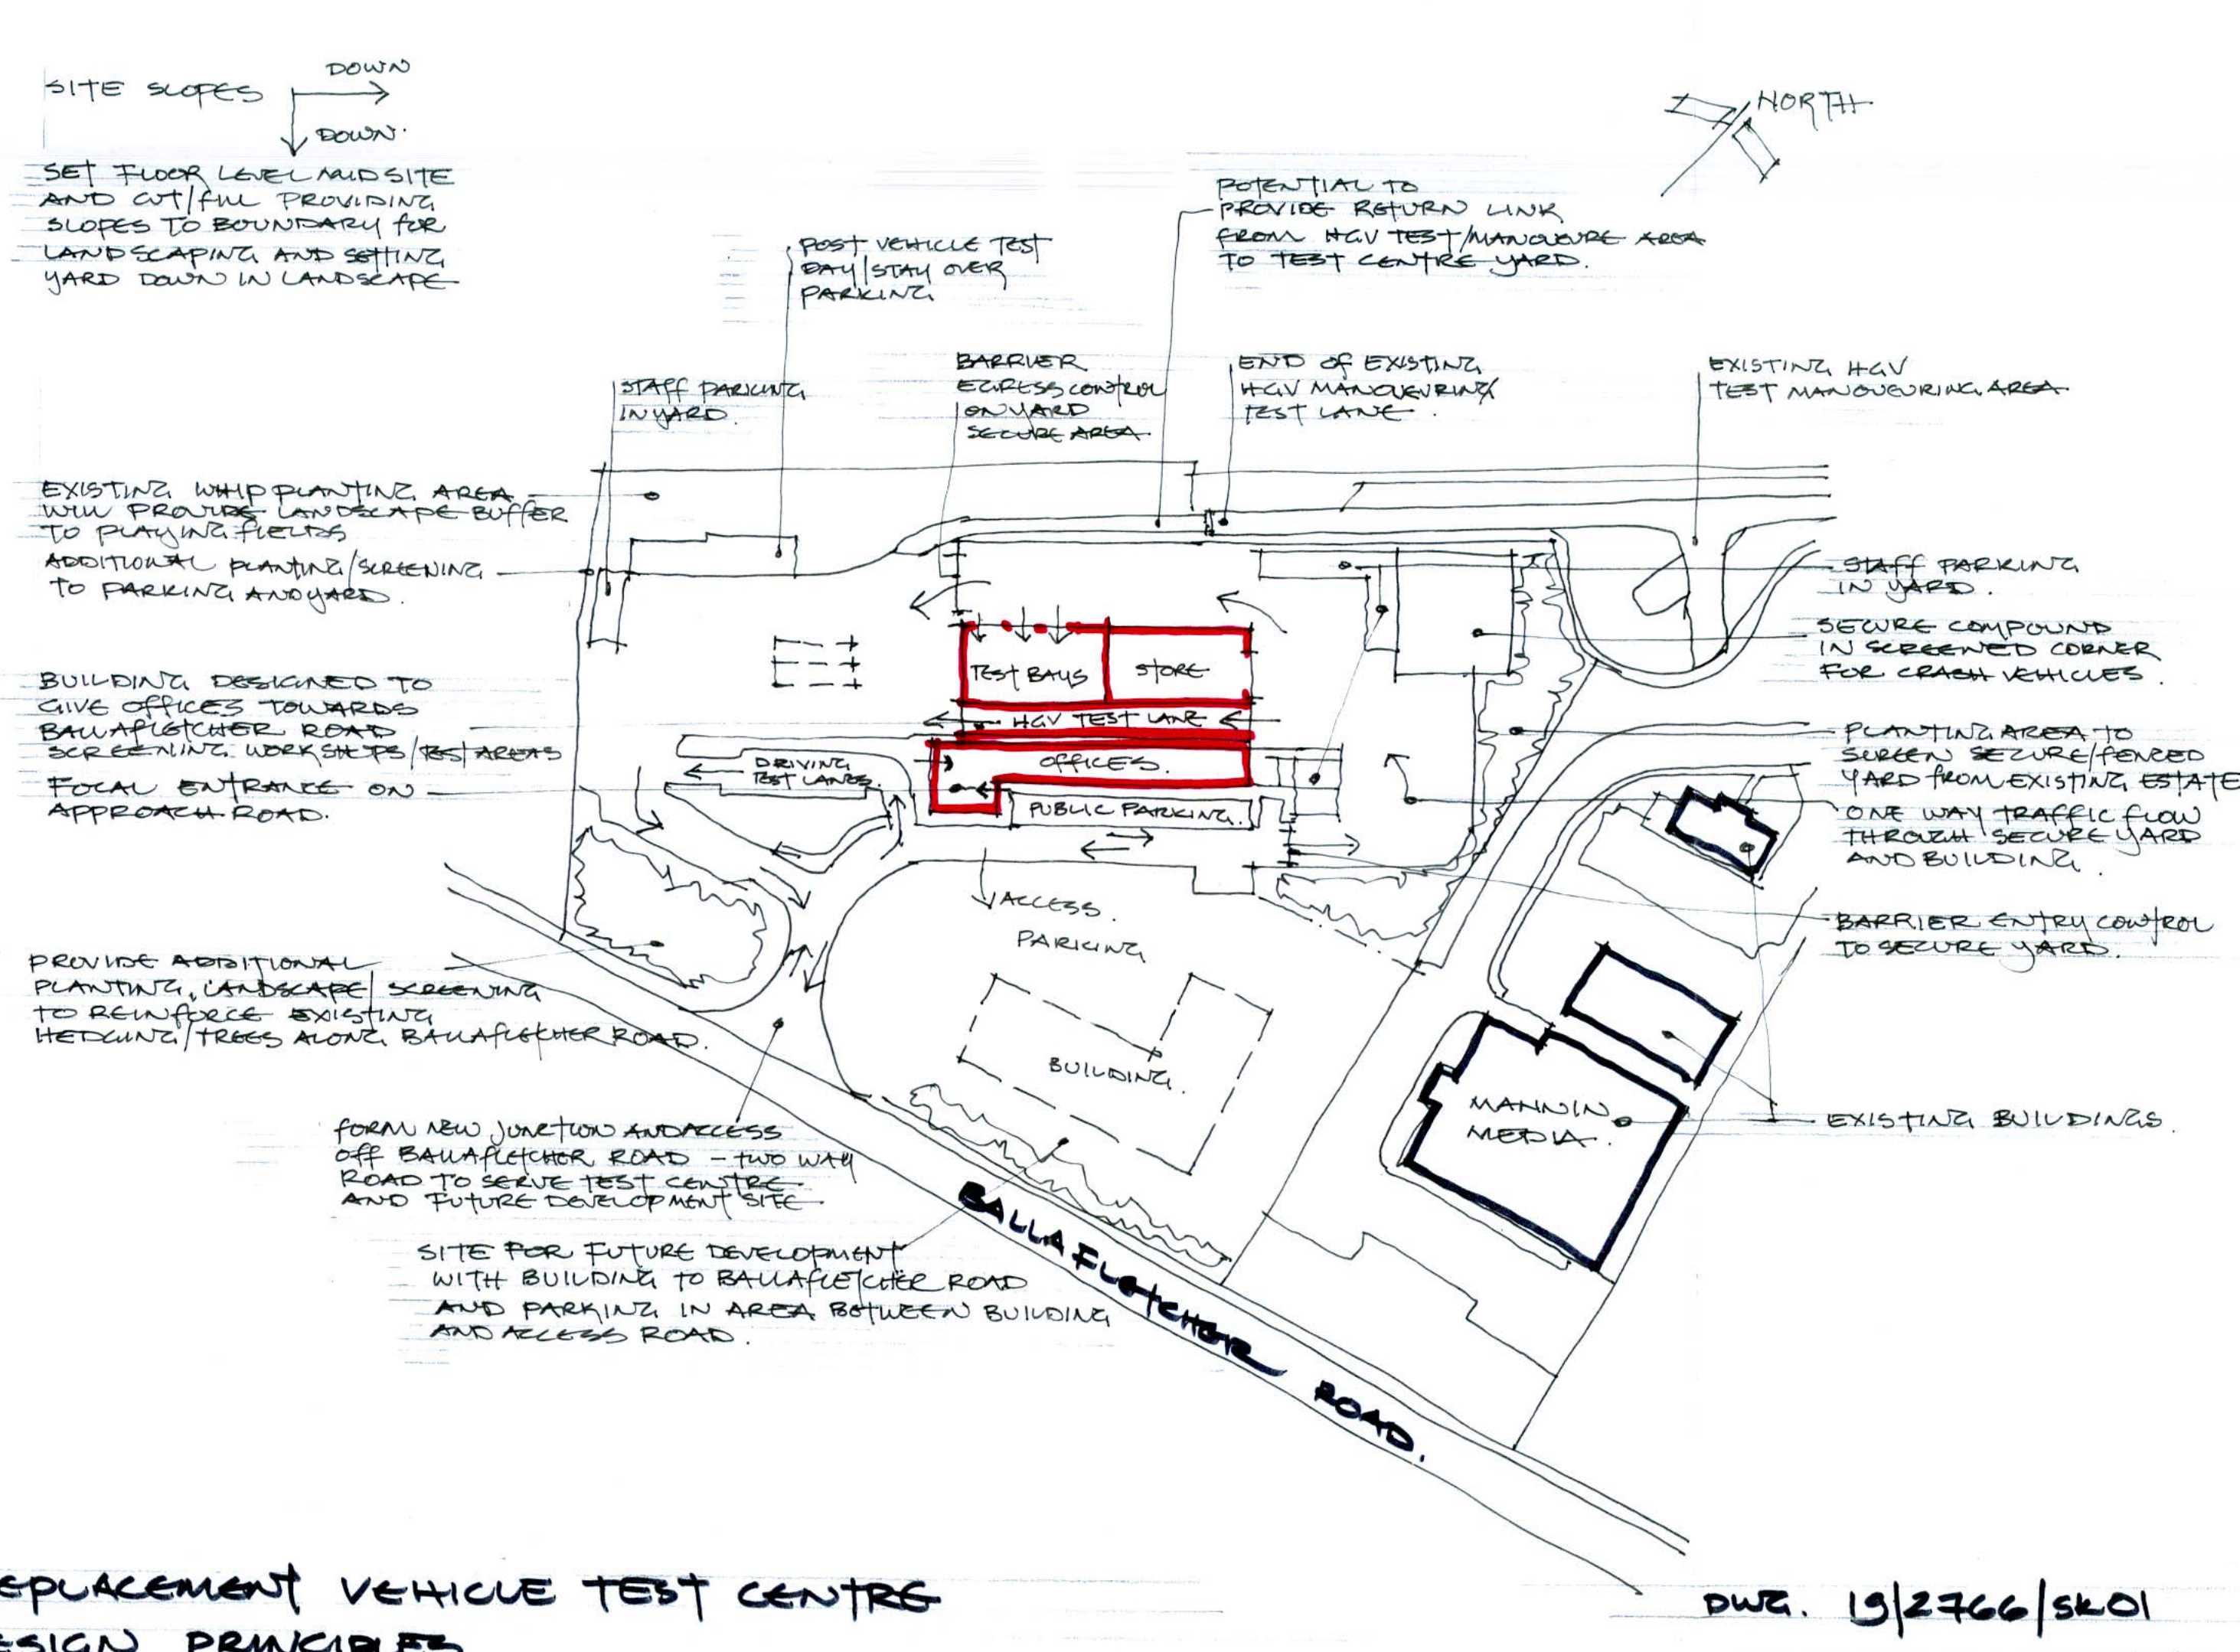 SITE SLOPES
DOWN
DOWN.
SET FLOOR LEVEL MID SITE
AND CUT/FILL PROVIDING
SLOPES TO BOUNDARY FOR
LANDSCAPING AND SETTING
YARD DOWN IN LANDSCAPE
NORTH
POST VEHICLE TEST
DAY/STAY OVER
PARKING
POTENTIAL TO
PROVIDE RETURN LINK
FROM HGV TEST/MANOUEURE AREA
TO TEST CENTRE YARD.
STAFF PARKING
IN YARD.
BARRIER
EGRESS CONTROL
ON YARD
SECURE AREA
END OF EXISTING
HGV MANOUEVRING
TEST LANE.
EXISTING HGV
TEST MANOUEVRING AREA
EXISTING WHIP PLANTING AREA
WILL PROVIDE LANDSCAPE BUFFER
TO PLAYING FIELDS
ADDITIONAL PLANTING/SCREENING
TO PARKING AND YARD.
BUILDING DESIGNED TO
GIVE OFFICES TOWARDS
BALLAFLETCHER ROAD
SCREENING WORKSHOPS/TEST AREAS
FOCAL ENTRANCE ON
APPROACH ROAD.
TEST BAYS
STORE
HGV TEST LANE
OFFICES.
DRIVING
TEST LANES.
PUBLIC PARKING.
STAFF PARKING
IN YARD.
SECURE COMPOUND
IN SCREENED CORNER
FOR CRASH VEHICLES.
PLANTING AREA TO
SCREEN SECURE/FENCED
YARD FROM EXISTING ESTATE
ONE WAY TRAFFIC FLOW
THROUGH SECURE YARD
AND BUILDING.
BARRIER ENTRY CONTROL
TO SECURE YARD.
ACCESS.
PARKING
BUILDING.
MANNIN
MEDIA.
EXISTING BUILDINGS.
PROVIDE ADDITIONAL
PLANTING, LANDSCAPE/SCREENING
TO REINFORCE EXISTING
HEDGING/TREES ALONG BALLAFLETCHER ROAD.
FORM NEW JUNCTION AND ACCESS
OFF BALLAFLETCHER ROAD - TWO WAY
ROAD TO SERVE TEST CENTRE
AND FUTURE DEVELOPMENT SITE
SITE FOR FUTURE DEVELOPMENT
WITH BUILDING TO BALLAFLETCHER ROAD
AND PARKING IN AREA BETWEEN BUILDING
AND ACCESS ROAD.
BALLAFLETCHER ROAD.
EPLACEMENT VEHICLE TEST CENTRE
ESIGN PRINCIPLES
DWG. 19/2766/SK01